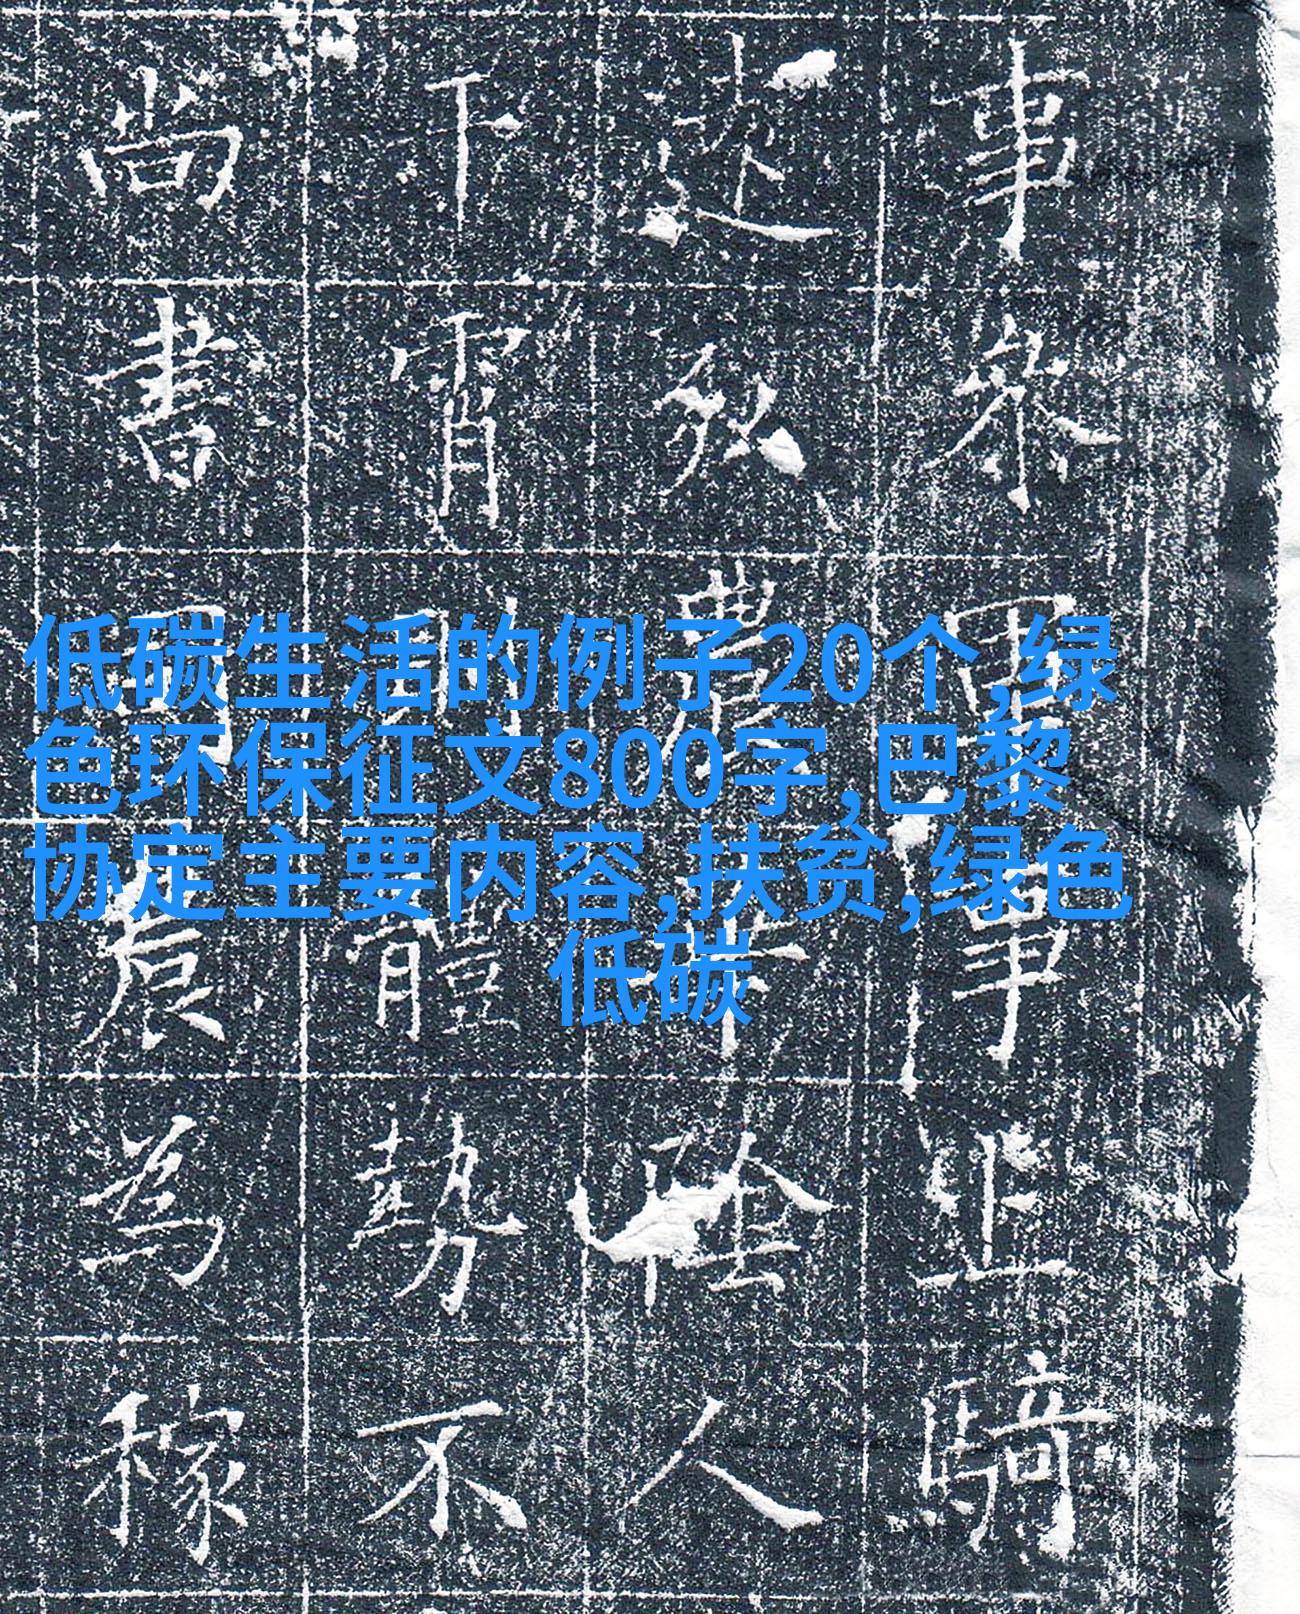 低碳生活的例子20个,绿
色环保征文800字,巴黎
协定主要内容,扶贫,绿色
低碳
事 軍 騎
農 陰人
下霄 體勢不
尚書 為稼